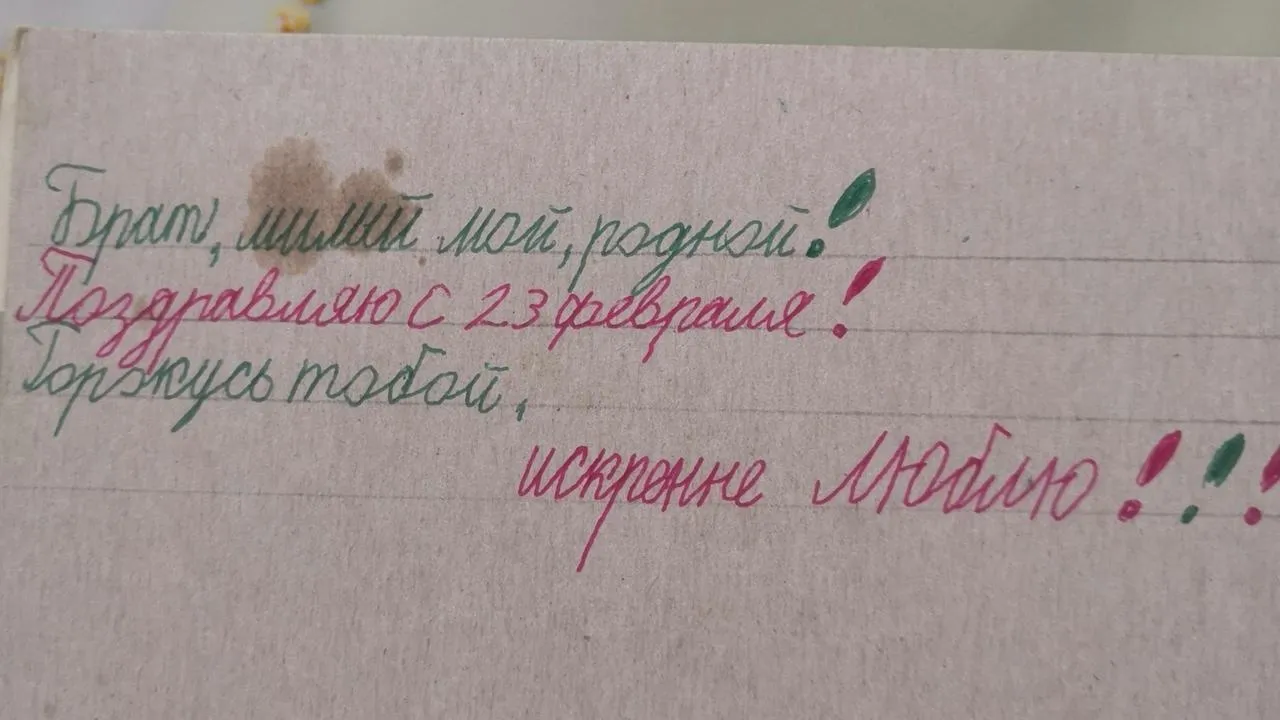 Брат, милый мой, родной!
Поздравляю с 23 февраля!
Горжусь тобой,
искренне люблю!!!